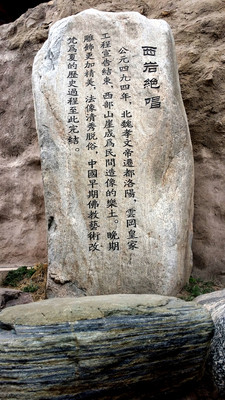 西岩絶唱
公元四九四年，北魏孝文帝遷都洛陽，雲岡皇家
工程宣告結束，西部山崖成爲民間造像的樂土。晚期
雕飾更加精美，法像清秀脱俗，中國早期佛教藝術改
梵爲夏的歷史過程至此完結。